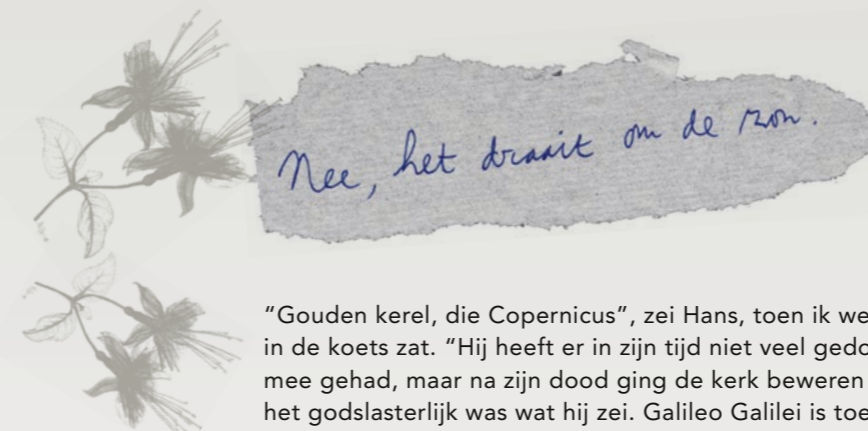 Nee, het draait om de zon.
“Gouden kerel, die Copernicus”, zei Hans, toen ik we
in de koets zat. “Hij heeft er in zijn tijd niet veel gedo
mee gehad, maar na zijn dood ging de kerk beweren
het godslasterlijk was wat hij zei. Galileo Galilei is toe